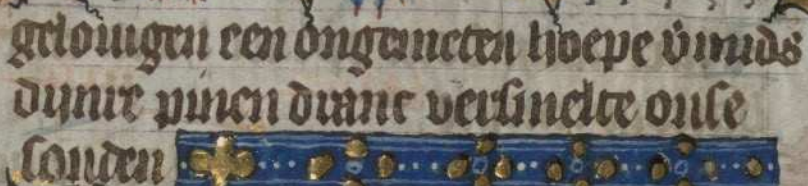 gelouigen een ongemeten hoepe v̄mids
dijnre pinen dranc versmelte onse
sonden